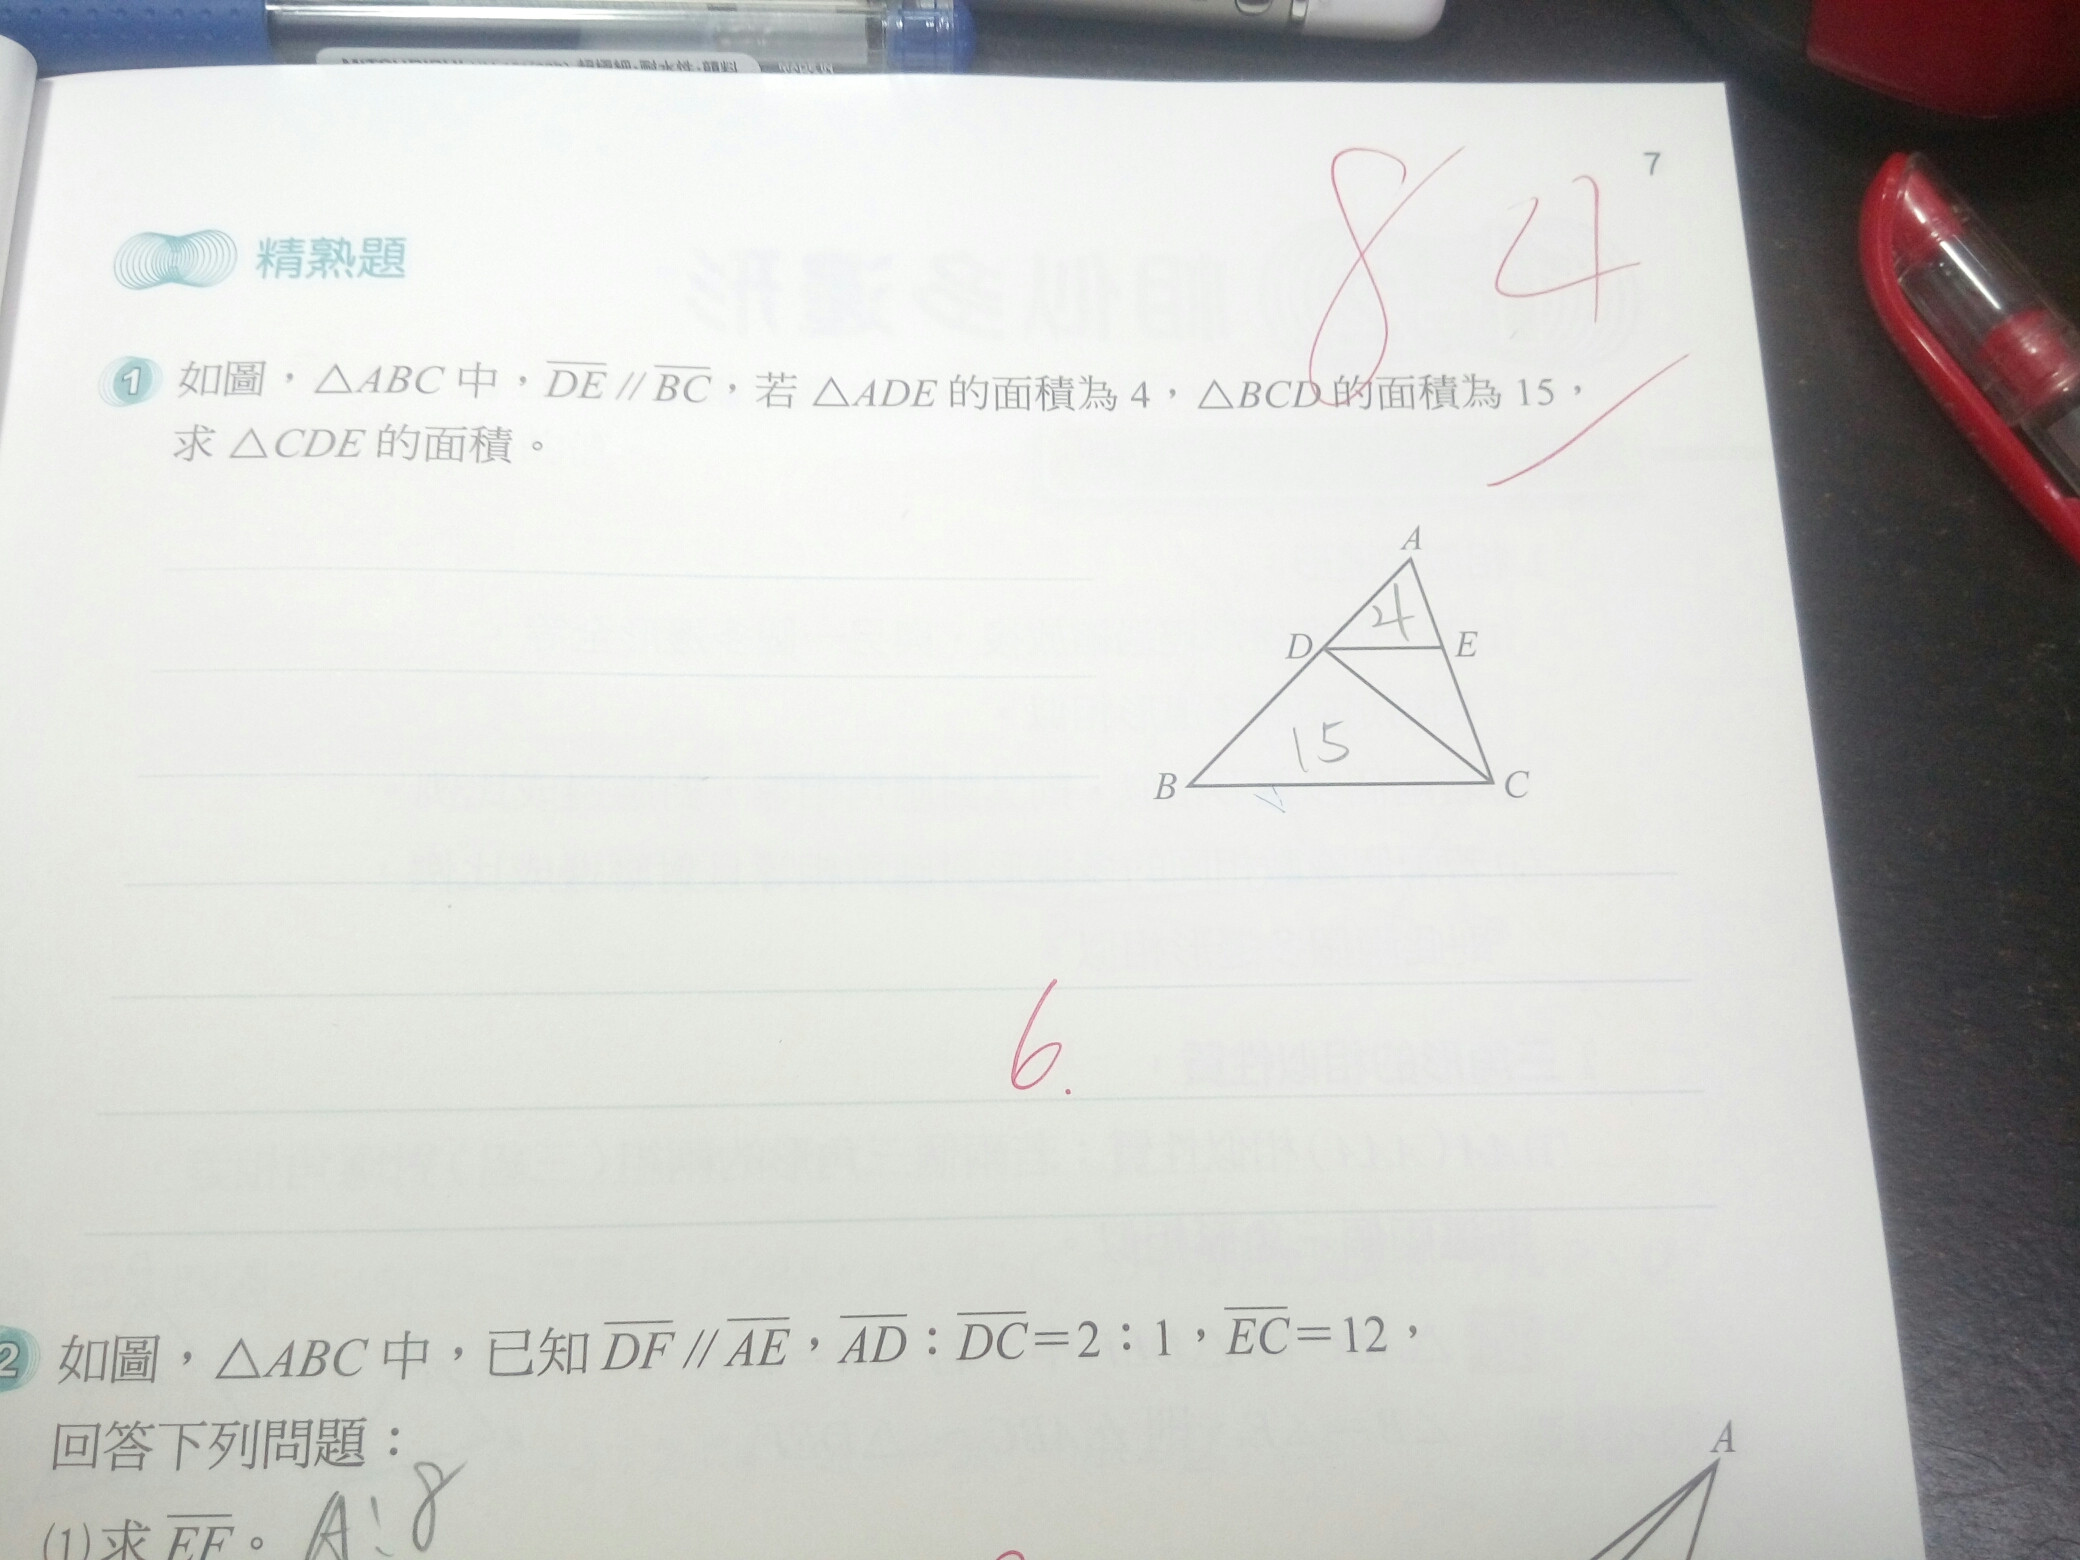 7
84
精熟題
1 如圖，△ABC 中，DE // BC，若 △ADE 的面積為 4，△BCD 的面積為 15，
求 △CDE 的面積。
A
4
D
E
15
B
C
6.
2 如圖，△ABC 中，已知 DF // AE，AD：DC=2：1，EC=12，
回答下列問題：
A
(1)求 EF。 A：8